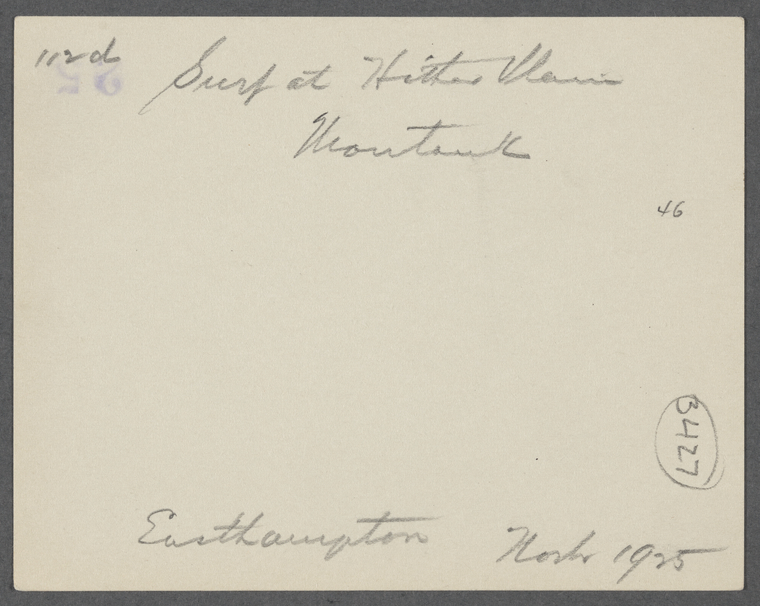 112d
Surf at Hither Plain
Montauk
46
3427
Easthampton 1925